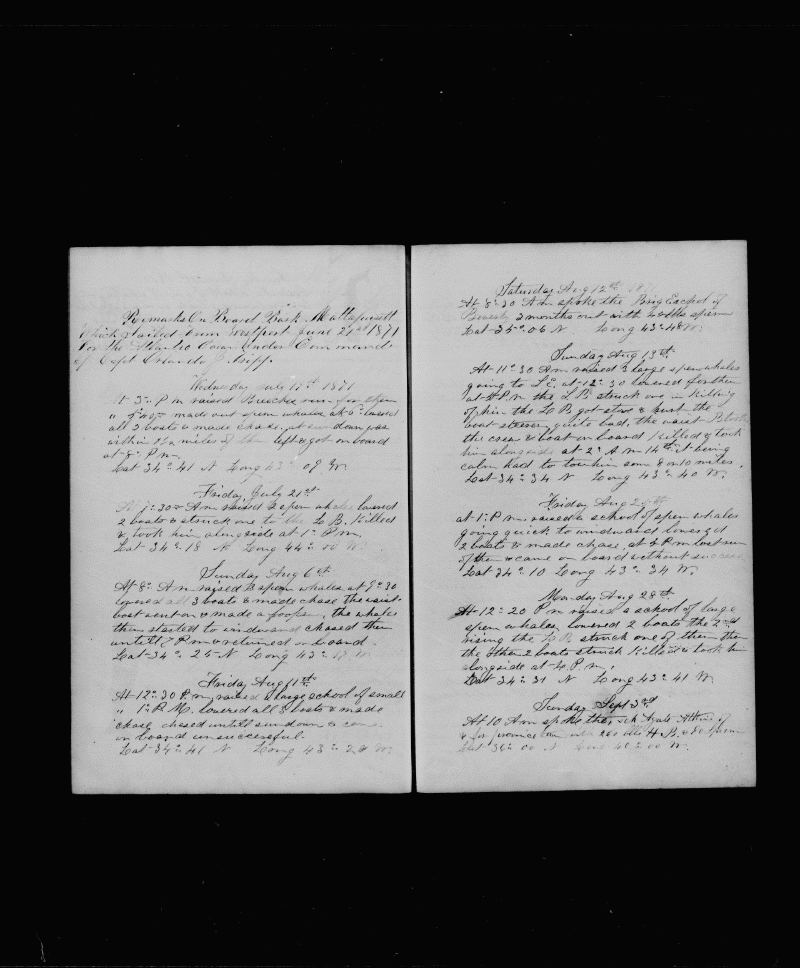 Remarks On Board Bark Mattapoisett
Which Sailed from Westport June 21st 1871
For the Atlantic Ocean Under Command
of Capt Orlando
Wednesday July 1871
At 3 Pm raised Breeches run for them
" made out sperm whales at lowered
all 3 boats & made chase, at sundown was
within 1½ miles of them left & got on board
at 8 Pm
Lat 34° 41 N Long 43° 09 W
Friday July 21st
At Am raised 3 sperm whales lowered
2 boats & struck one to the L B. Killed
& took him alongside at 1 Pm
Lat 34° 18 N Long 44° 00 W
Sunday Aug 6th
At 8 Am raised 3 sperm whales at 9 30
lowered all 3 boats & made chase the waist
boat went on & made a the whales
then started to windward chased them
untill 7 Pm & returned on board
Lat 34° 25 N Long 43° W
Friday Aug 11th
At 12 30 Pm raised a large school of small
" 1 P M. lowered all 3 boats & made
chase, chased untill sundown & came
on board unsuccessful.
Lat 34° 41 N Long 43° 28 W
Saturday Aug 12th 1871
At 8 30 Am spoke the Brig Eschol of
3 months out with sperm
Lat 35° 06 N Long 43° 48 W
Sunday Aug 13th
At 11 30 Am raised 3 large sperm whales
going to S.E. at 12 30 lowered for them
at 4 Pm the L B struck one in killing
of him the L B got stove & hurt the
boat steerer quite bad, the waist
the crew & boat on board Killed & took
him alongside at 2 A m 14th it being
calm had to tow him some 8 or 10 miles.
Lat 34° 34 N Long 43° 40 W.
Friday Aug
at 1 P m raised a school of sperm whales
going quick to windward lowered
2 boats & made chase at Pm lost run
of them & came on board without success
Lat 34° 10 Long 43° 34 W.
Monday Aug 28th
At 12 20 Pm raised a school of large
sperm whales, lowered 2 boats the 2nd
rising the L B. struck one of them then
the other 2 boats struck Killed & took him
alongside at Pm.
Lat 34° 31 N Long 43° 41 W
Sunday Sept 3rd
At 10 Am spoke the of
with 200 bbls H B. & sperm
Lat 36° 00 N Long 40° 00 W.